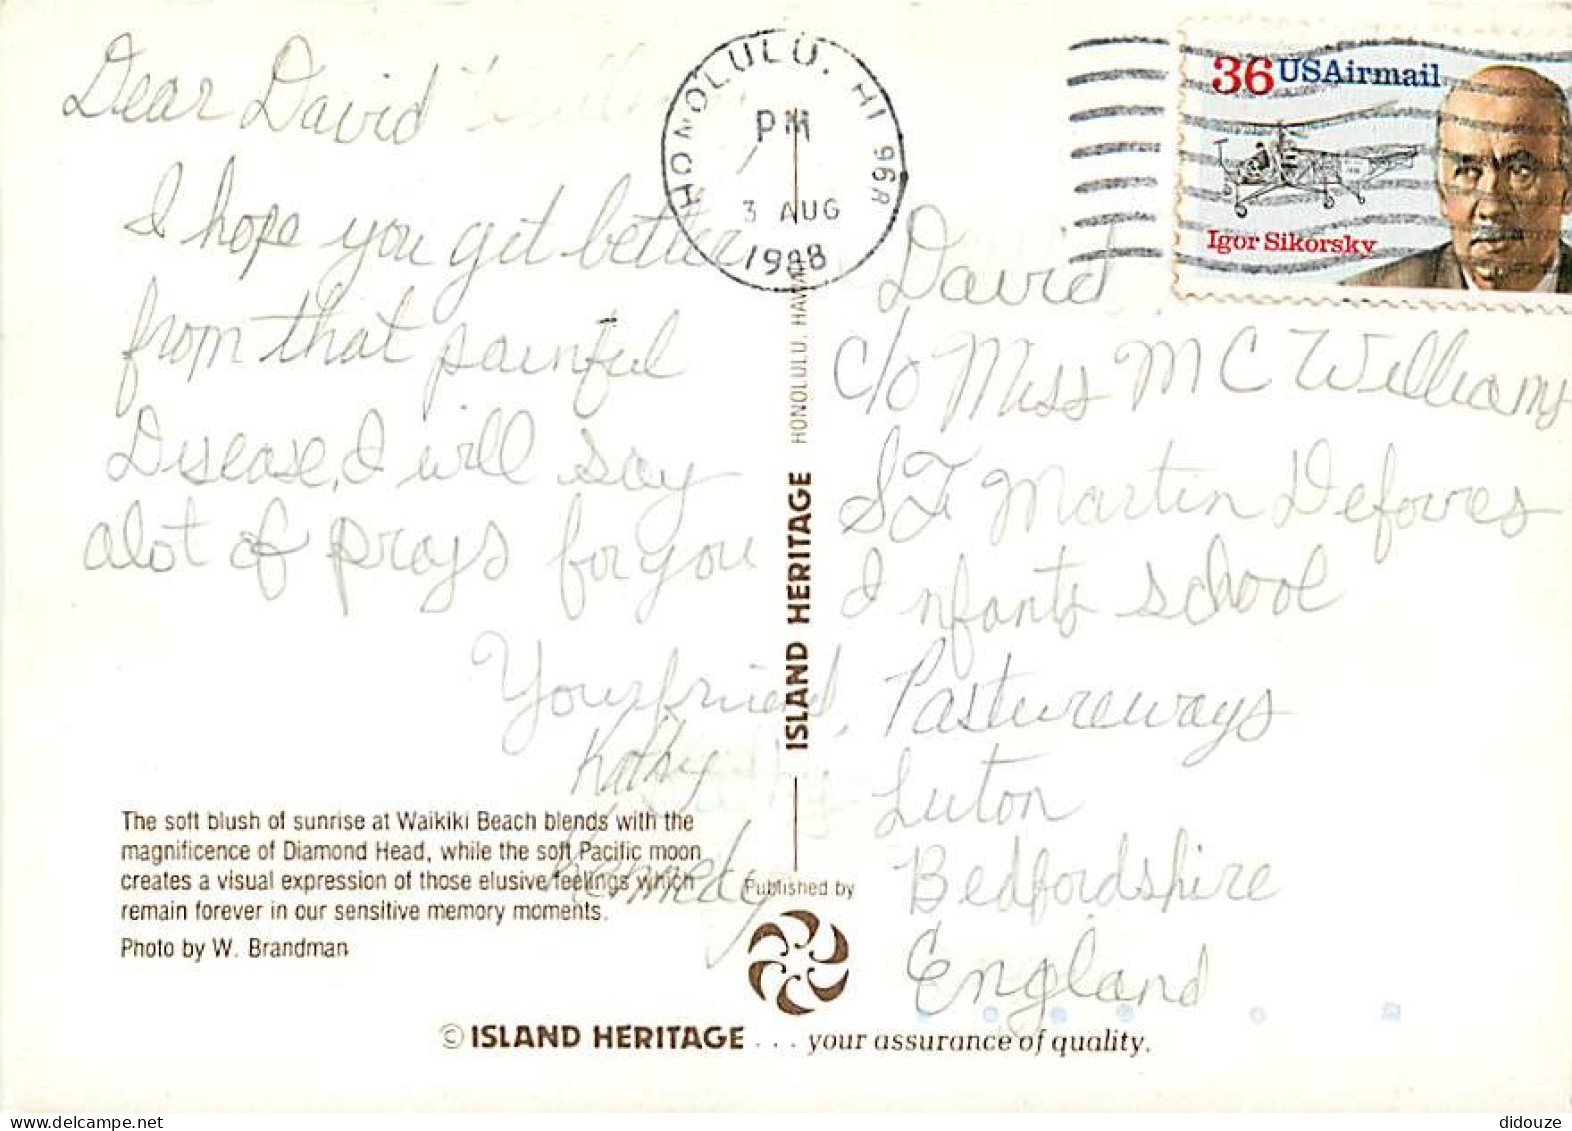 Dear David
I hope you get better
from that painful
Disease, I will say
alot of prays for you
Your friend,
Kathy
Kennedy
The soft blush of sunrise at Waikiki Beach blends with the
magnificence of Diamond Head, while the soft Pacific moon
creates a visual expression of those elusive feelings which
remain forever in our sensitive memory moments.
Photo by W. Brandman
HONOLULU, HI 968
PM
3 AUG
1988
36 USAirmail
Igor Sikorsky
David
c/o Miss MC Williams
ST Martin Defores
Infants school
Pastureways
Luton
Bedfordshire
England
ISLAND HERITAGE HONOLULU, HAWAII
Published by
© ISLAND HERITAGE ... your assurance of quality.
didouze